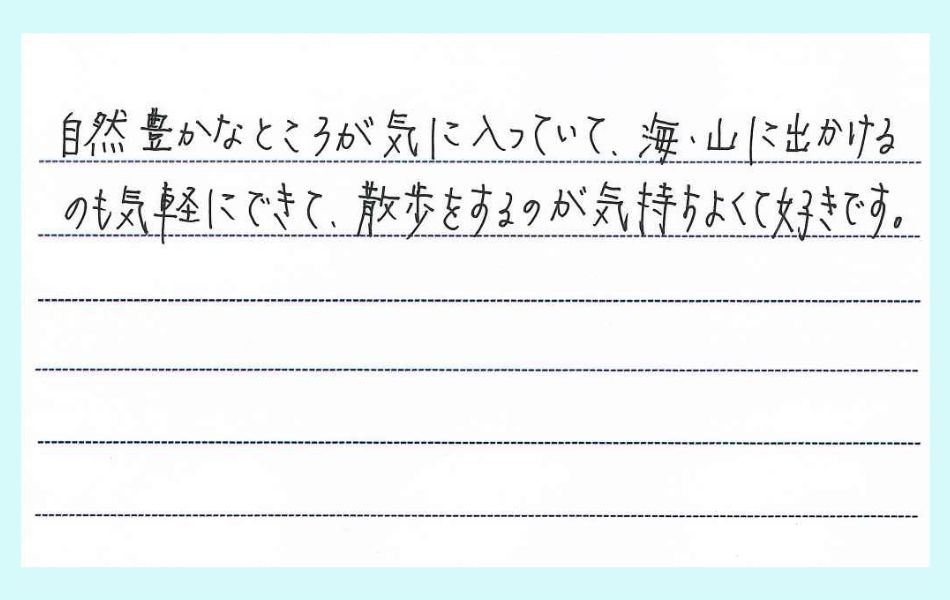 自然豊かなところが気に入っていて、海・山に出かける
のも気軽にできて、散歩をするのが気持ちよくて好きです。